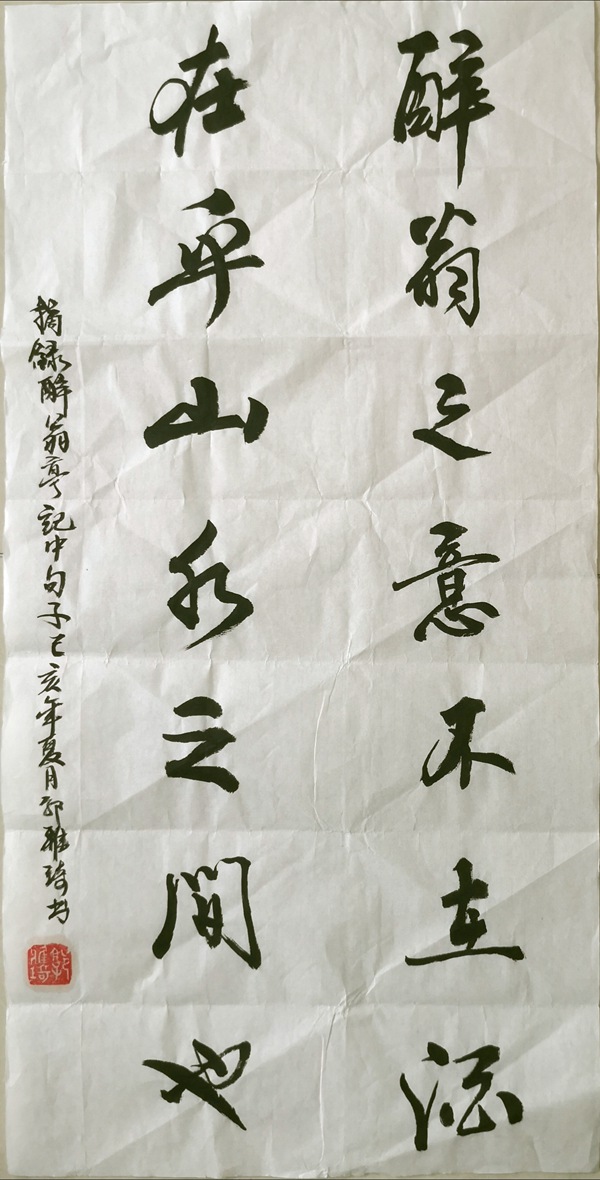 醉翁之意不在酒
在乎山水之間也
摘錄醉翁亭記中句子己亥年夏月郭雅琦书
郭雅琦